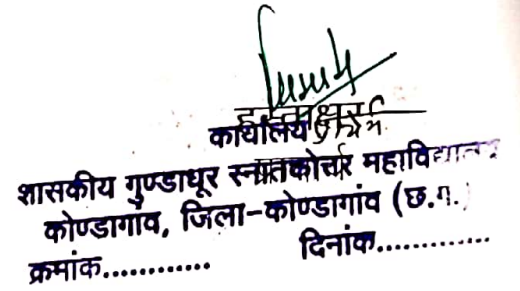 हस्ताक्षर
कार्यालय
शासकीय गुण्डाधूर स्नातकोत्तर महाविद्यालय
कोण्डागांव, जिला-कोण्डागांव (छ.ग.)
क्रमांक............ दिनांक.............